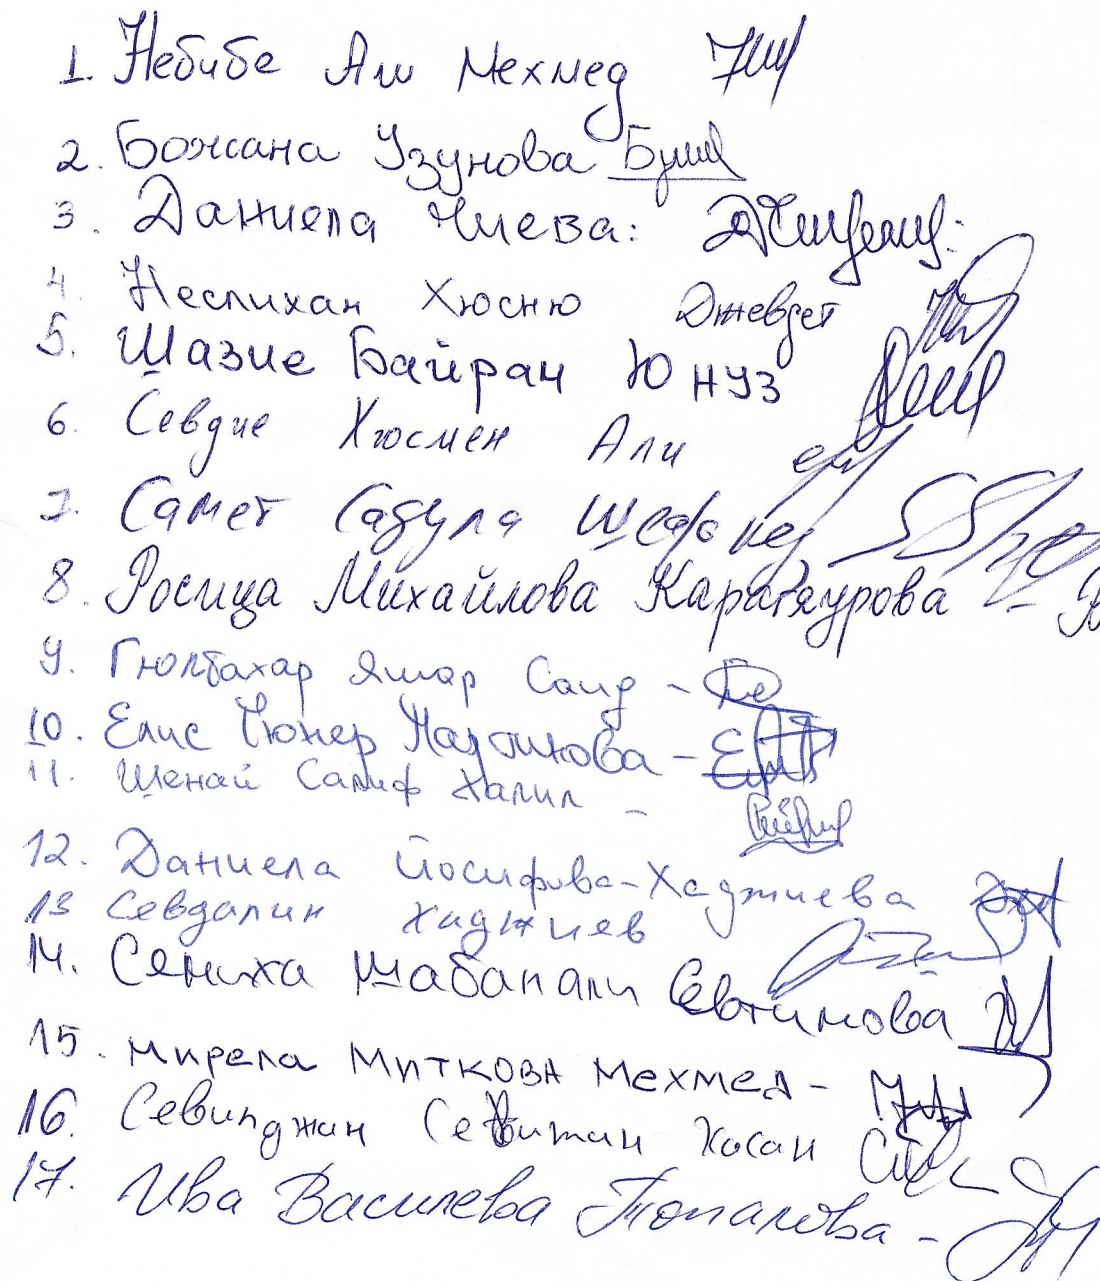 1. Небибе Али Мехмед
2. Божана Узунова
3. Даниела Чиева:
4. Неслихан Хюсню Джевдет
5. Шазие Байрам Юнуз
6. Севдие Хюсмен Али
7. Самет Садула Шефкед
8. Росица Михайлова Карагяурова -
9. Гюлбахар Яшар Саид -
10. Елис Тюнер -
11. Шенай Салиф Халил -
12. Даниела Йосифова-Хаджиева
13 Севдалин Хаджиев
14. Сениха Шабанали Евтимова
15. Мирела Миткова Мехмед -
16. Севинджан Севижан Хасан
17. Ива Василева Топалова -